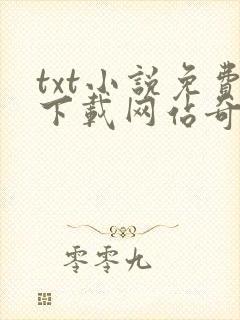 txt小説免費
下載网佔奇
零零九